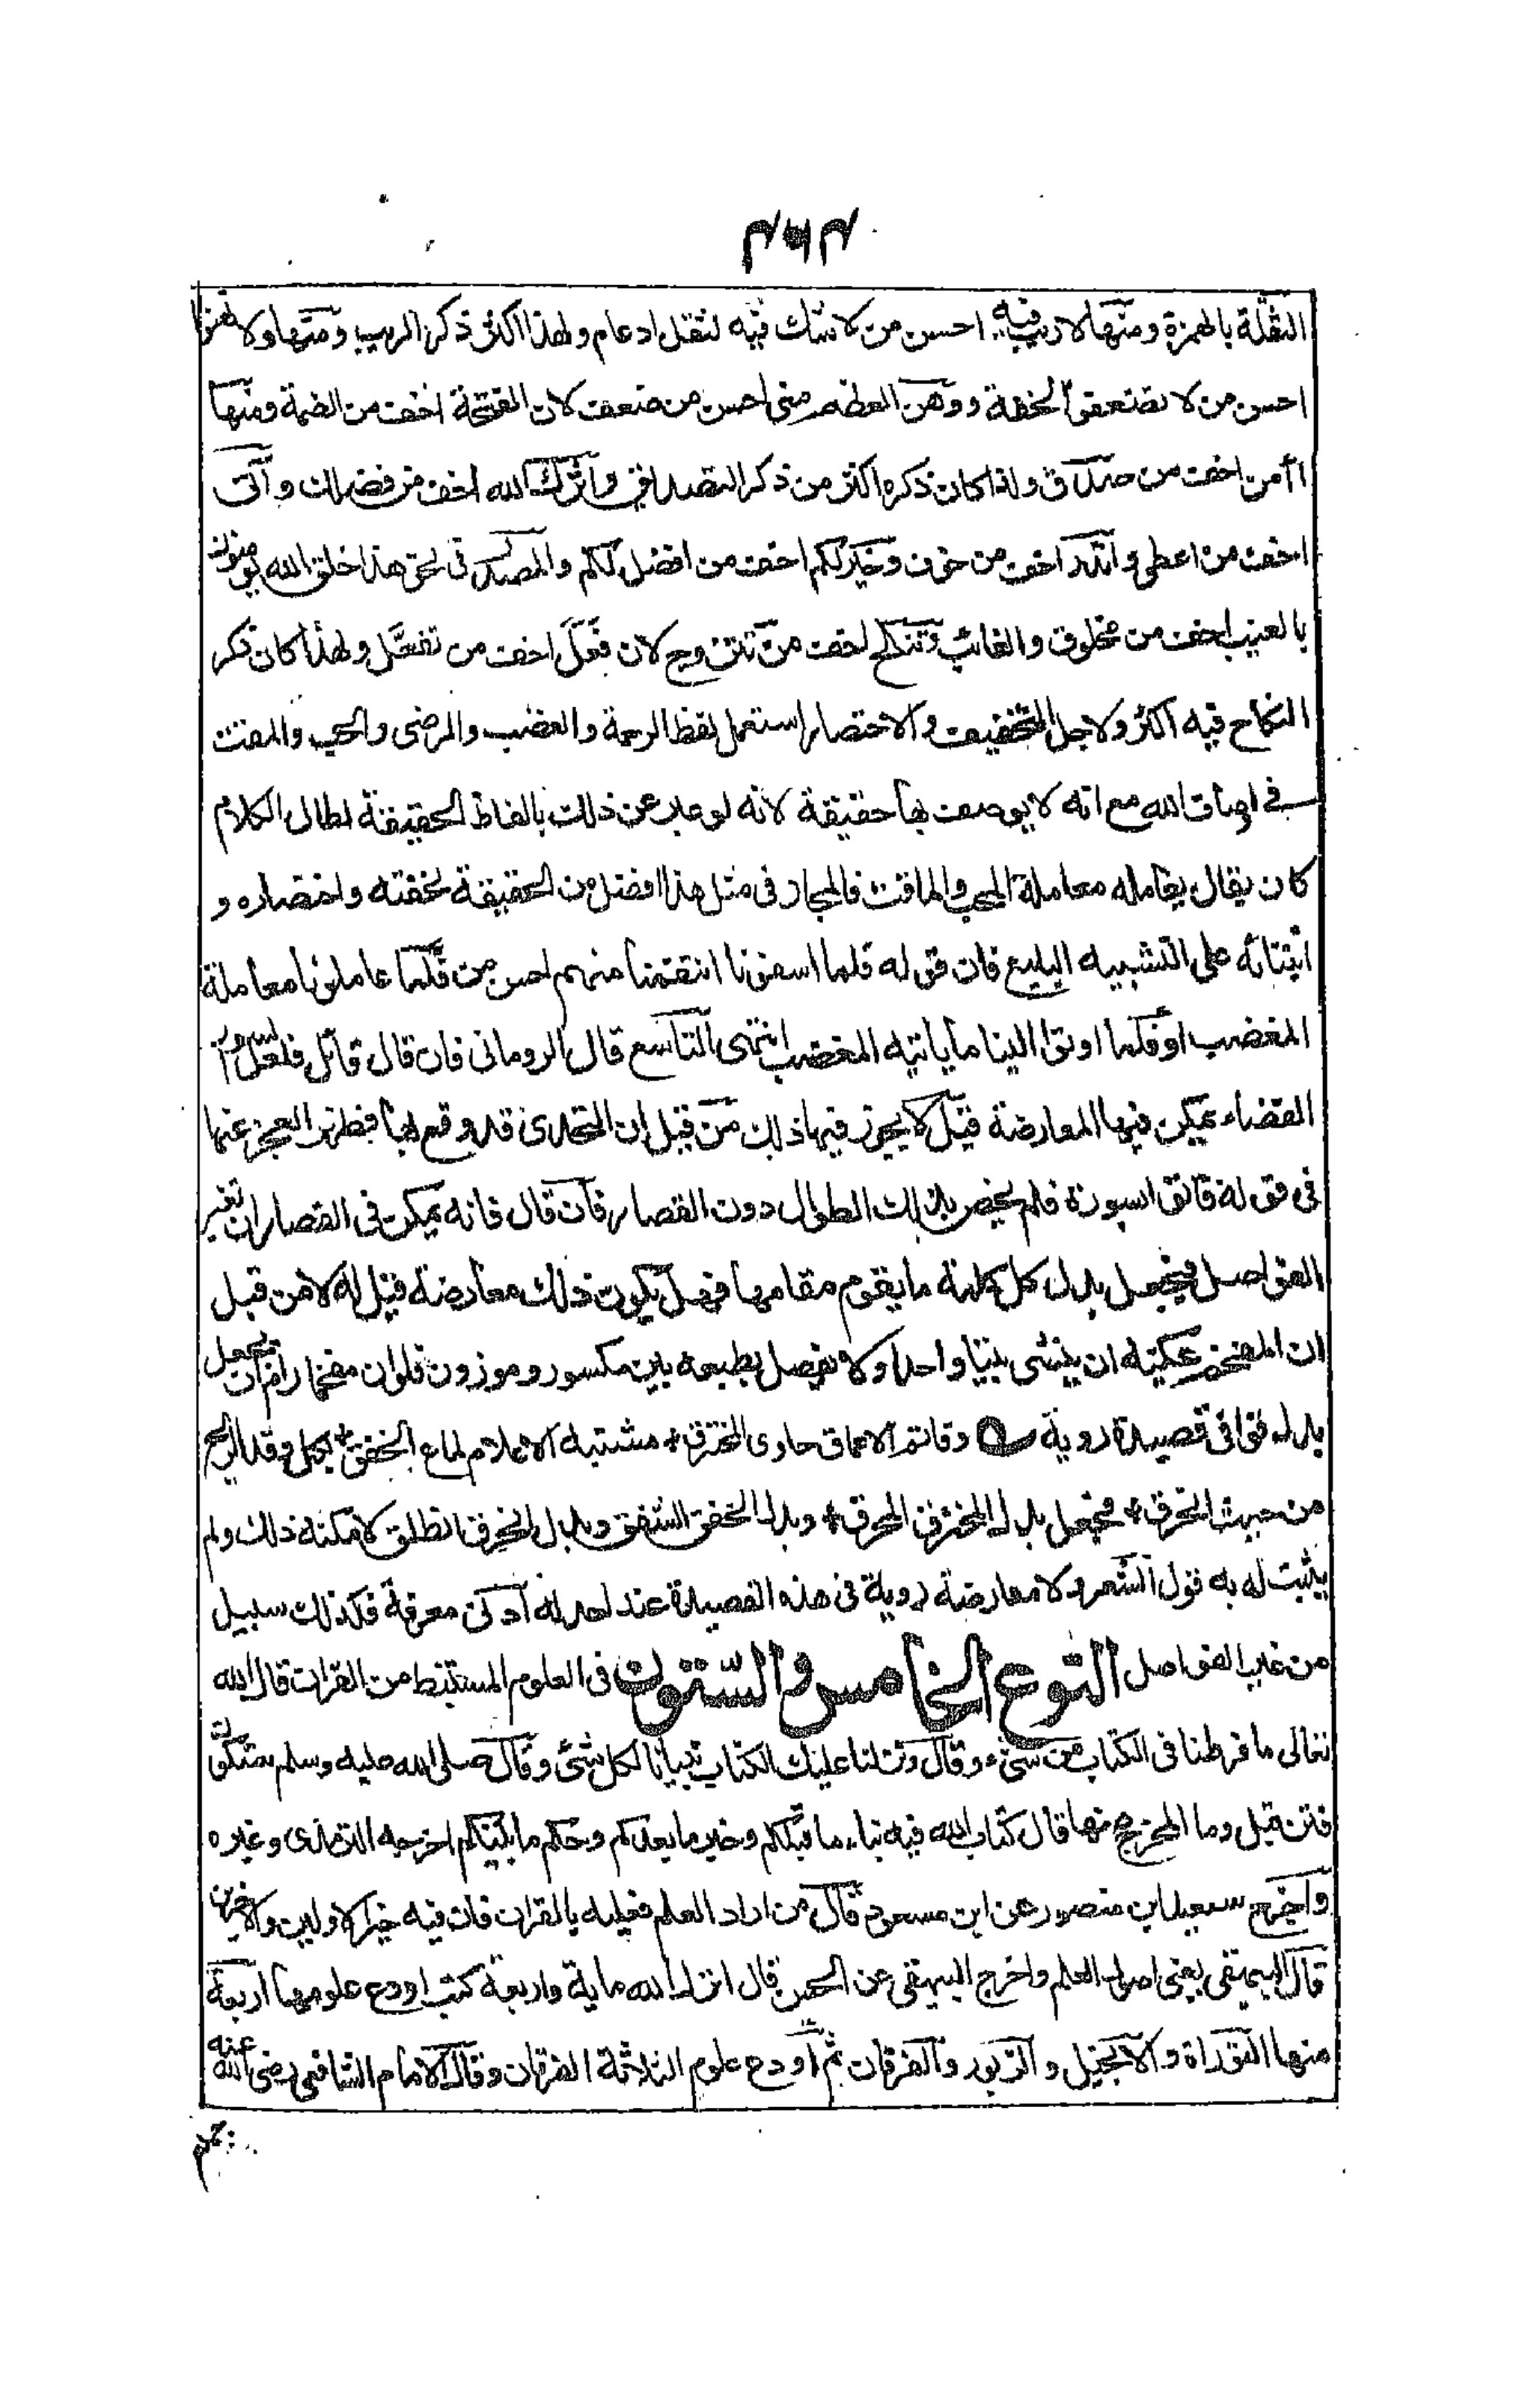 الثقلة بالهمزة ومنها لا ريب فيه احسن من لا شك فيه لثقل ادغام ولهذا اكثر ذكر الريب ومنها ولا تهنوا
احسن من لا تضعفوا لخفته ووهن العظم منى احسن من ضعف لان الفتحة اخف من الضمة ومنها
اأمن اخف من صدق ولذا كان ذكره اكثر من ذكر التصديق واثرك الله اخف من فضلك وآتى
اخف من اعطى وانذر اخف من خوف وخير لكم اخف من افضل لكم والمصدر فى نحو هذا خلق الله يؤمنون
بالغيب اخف من مخلوق والغائب وتنكح اخف من تتزوج لان فعل اخف من تفعّل ولهذا كان ذكر
النكاح فيه اكثر ولاجل التخفيف والاختصار استعمل لفظ الرحمة والغضب والرضى والحب والمقت
فى اوصاف الله مع انه لا يوصف بها حقيقة لانه لو عبر عن ذلك بالفاظ الحقيقة لطال الكلام
كان يقال يعامله معاملة المحب والماقت فالمجاز فى مثل هذا افضل من الحقيقة لخفته واختصاره و
ابتنائه على التشبيه البليغ فان قوله فلما اسفونا انتقمنا منهم احسن من فلما عاملونا معاملة
المغضب او فلما اوتوا الينا ما ياتيه المغضب انتهى التاسع قال الرومانى فان قال قائل فلعل السور
القصار يمكن فيها المعارضة قيل لا يجوز فيها ذلك من قبل ان التحدى قد وقع بها فظهر العجز عنها
فى قوله فاتوا بسورة فلم يخص بذلك الطوال دون القصار فان قال فانه يمكن فى القصار ان تغير
الفواصل فيجعل بدل كل كلمة ما يقوم مقامها فهل يكون ذلك معارضة قيل له لا من قبل
ان المفخم يمكنه ان ينشى بيتا واحدا ولا يفصل بطبعه بين مكسور وموزون فلو ان مفخما رام ان يجعل
بدل قوافى قصيدة روية وقاتم الاعماق حاوى المخترق + مشتبه الاعلام لماع الخفق + بكل وفد الريح
من حيث انخرق + فجعل بدل المخترق الممزق + وبدل الخفق الشفق وبدل انخرق انطلق لامكنه ذلك ولم
يثبت له به قول الشعر ولا معارضة روية فى هذه القصيدة عند احد له ادنى معرفة فكذلك سبيل
من غير الفواصل النوع الخامس والستون فى العلوم المستنبط من القران قال الله
تعالى ما فرطنا فى الكتاب من شىء وقال ونزلنا عليك الكتاب تبيانا لكل شئ وقال صلى الله عليه وسلم ستكون
فتن قيل وما المخرج منها قال كتاب الله فيه نبا ما قبلكم وخبر ما بعدكم وحكم ما بينكم اخرجه الترمذى وغيره
واخرج سعيد ابن منصور عن ابن مسعود قال من اراد العلم فعليه بالقران فان فيه خبر الاولين والاخرين
قال البيهقى يعنى اصول العلم واخرج البيهقى عن الحسن قال انزل الله ماية واربعة كتب اودع علومها اربعة
منها التوراة والانجيل والزبور والفرقان ثم اودع علوم الثلاثة الفرقان وقال الامام الشافعى رضى الله عنه